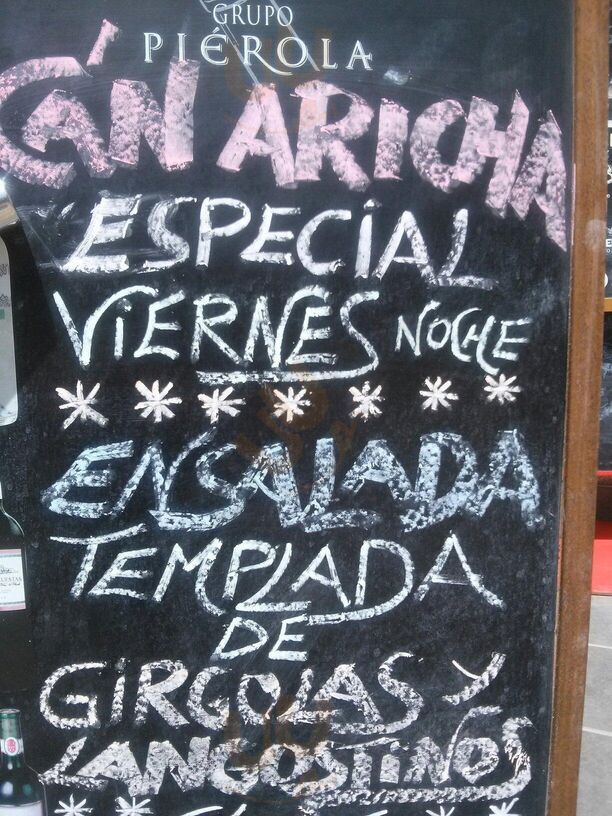 GRUPO
PIÉROLA
CÁN ARICHA
ESPECIAL
VIERNES NOCHE
* * * * * * *
ENSALADA
TEMPLADA
DE
GIRGOLAS Y
LANGOSTINOS